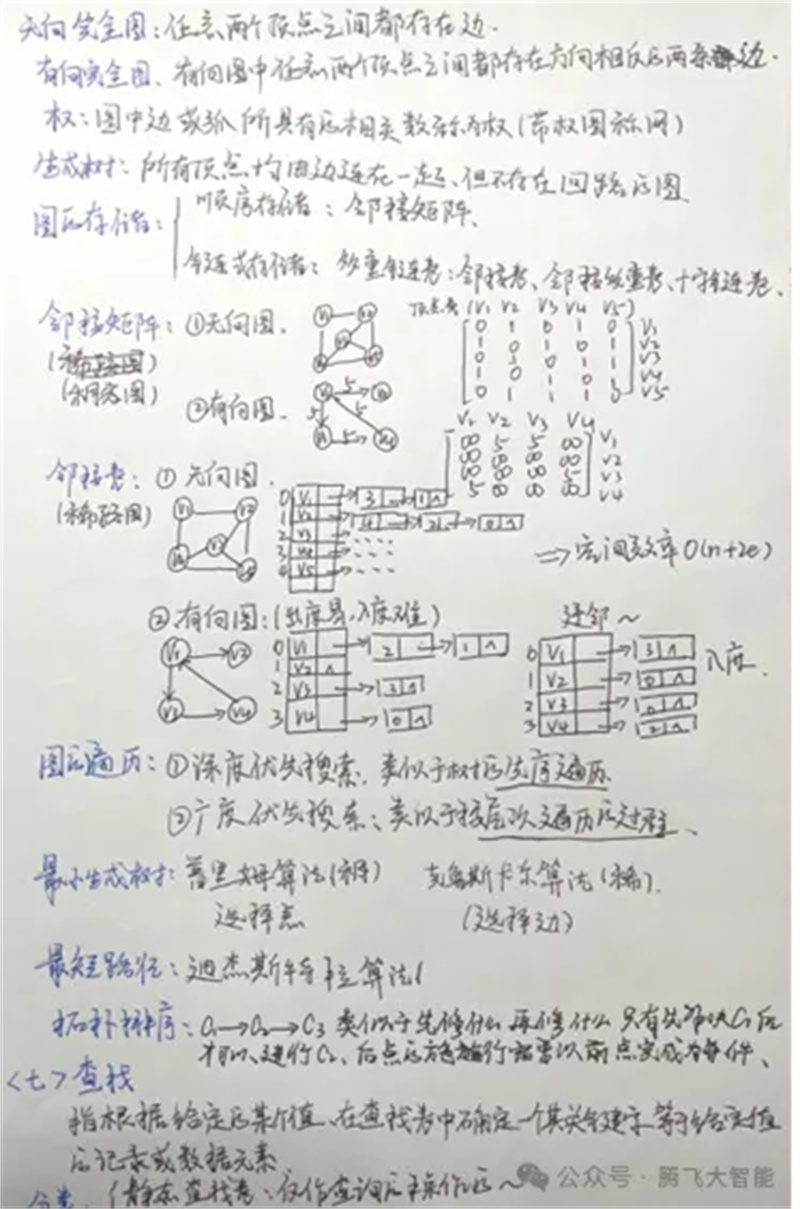 无向完全图：任意两个顶点之间都存在边.
有向完全图、有向图中任意两个顶点之间都存在方向相反的两条边.
权：图中边或弧所具有的相关数称为权(带权图称网)
生成树：所有顶点均由边连在一起、但不存在回路的图.
图的存储： 顺序存储：邻接矩阵、
链式存储：多重链表：邻接表、邻接多重表、十字链表、
邻接矩阵：①无向图. 顶点表(V1 V2 V3 V4 V5)
(稠密图)
②有向图. V1 V2 V3 V4
邻接表：①无向图.
(稀疏图)
⇒空间效率O(n+2e)
②有向图：(出度易,入度难) 逆邻~
0 V1 → 2 → 1 ∧ 0 V1 → 3 ∧ 入度.
1 V2 ∧ 1 V2 → 0 ∧
2 V3 → 3 ∧ 2 V3 → 0 ∧
3 V4 → 0 ∧ 3 V4 → 2 ∧
图的遍历：①深度优先搜索、类似于树的先序遍历.
②广度优先搜索：类似于按层次遍历的过程、
最小生成树：普里姆算法(稠) 克鲁斯卡尔算法(稀).
选择点 (选择边)
最短路径：迪杰斯特拉算法
拓扑排序：C1→C2→C3 类似于先修什么再修什么 只有先解决C1后
才可以进行C2、后点的 需要以前点完成为条件、
<七>查找
指根据给定的某个值、在查找表中确定一个其关键字等于给定值
的记录或数据元素
分类 静态查找表：仅作查询的操作的~
公众号·腾飞大智能